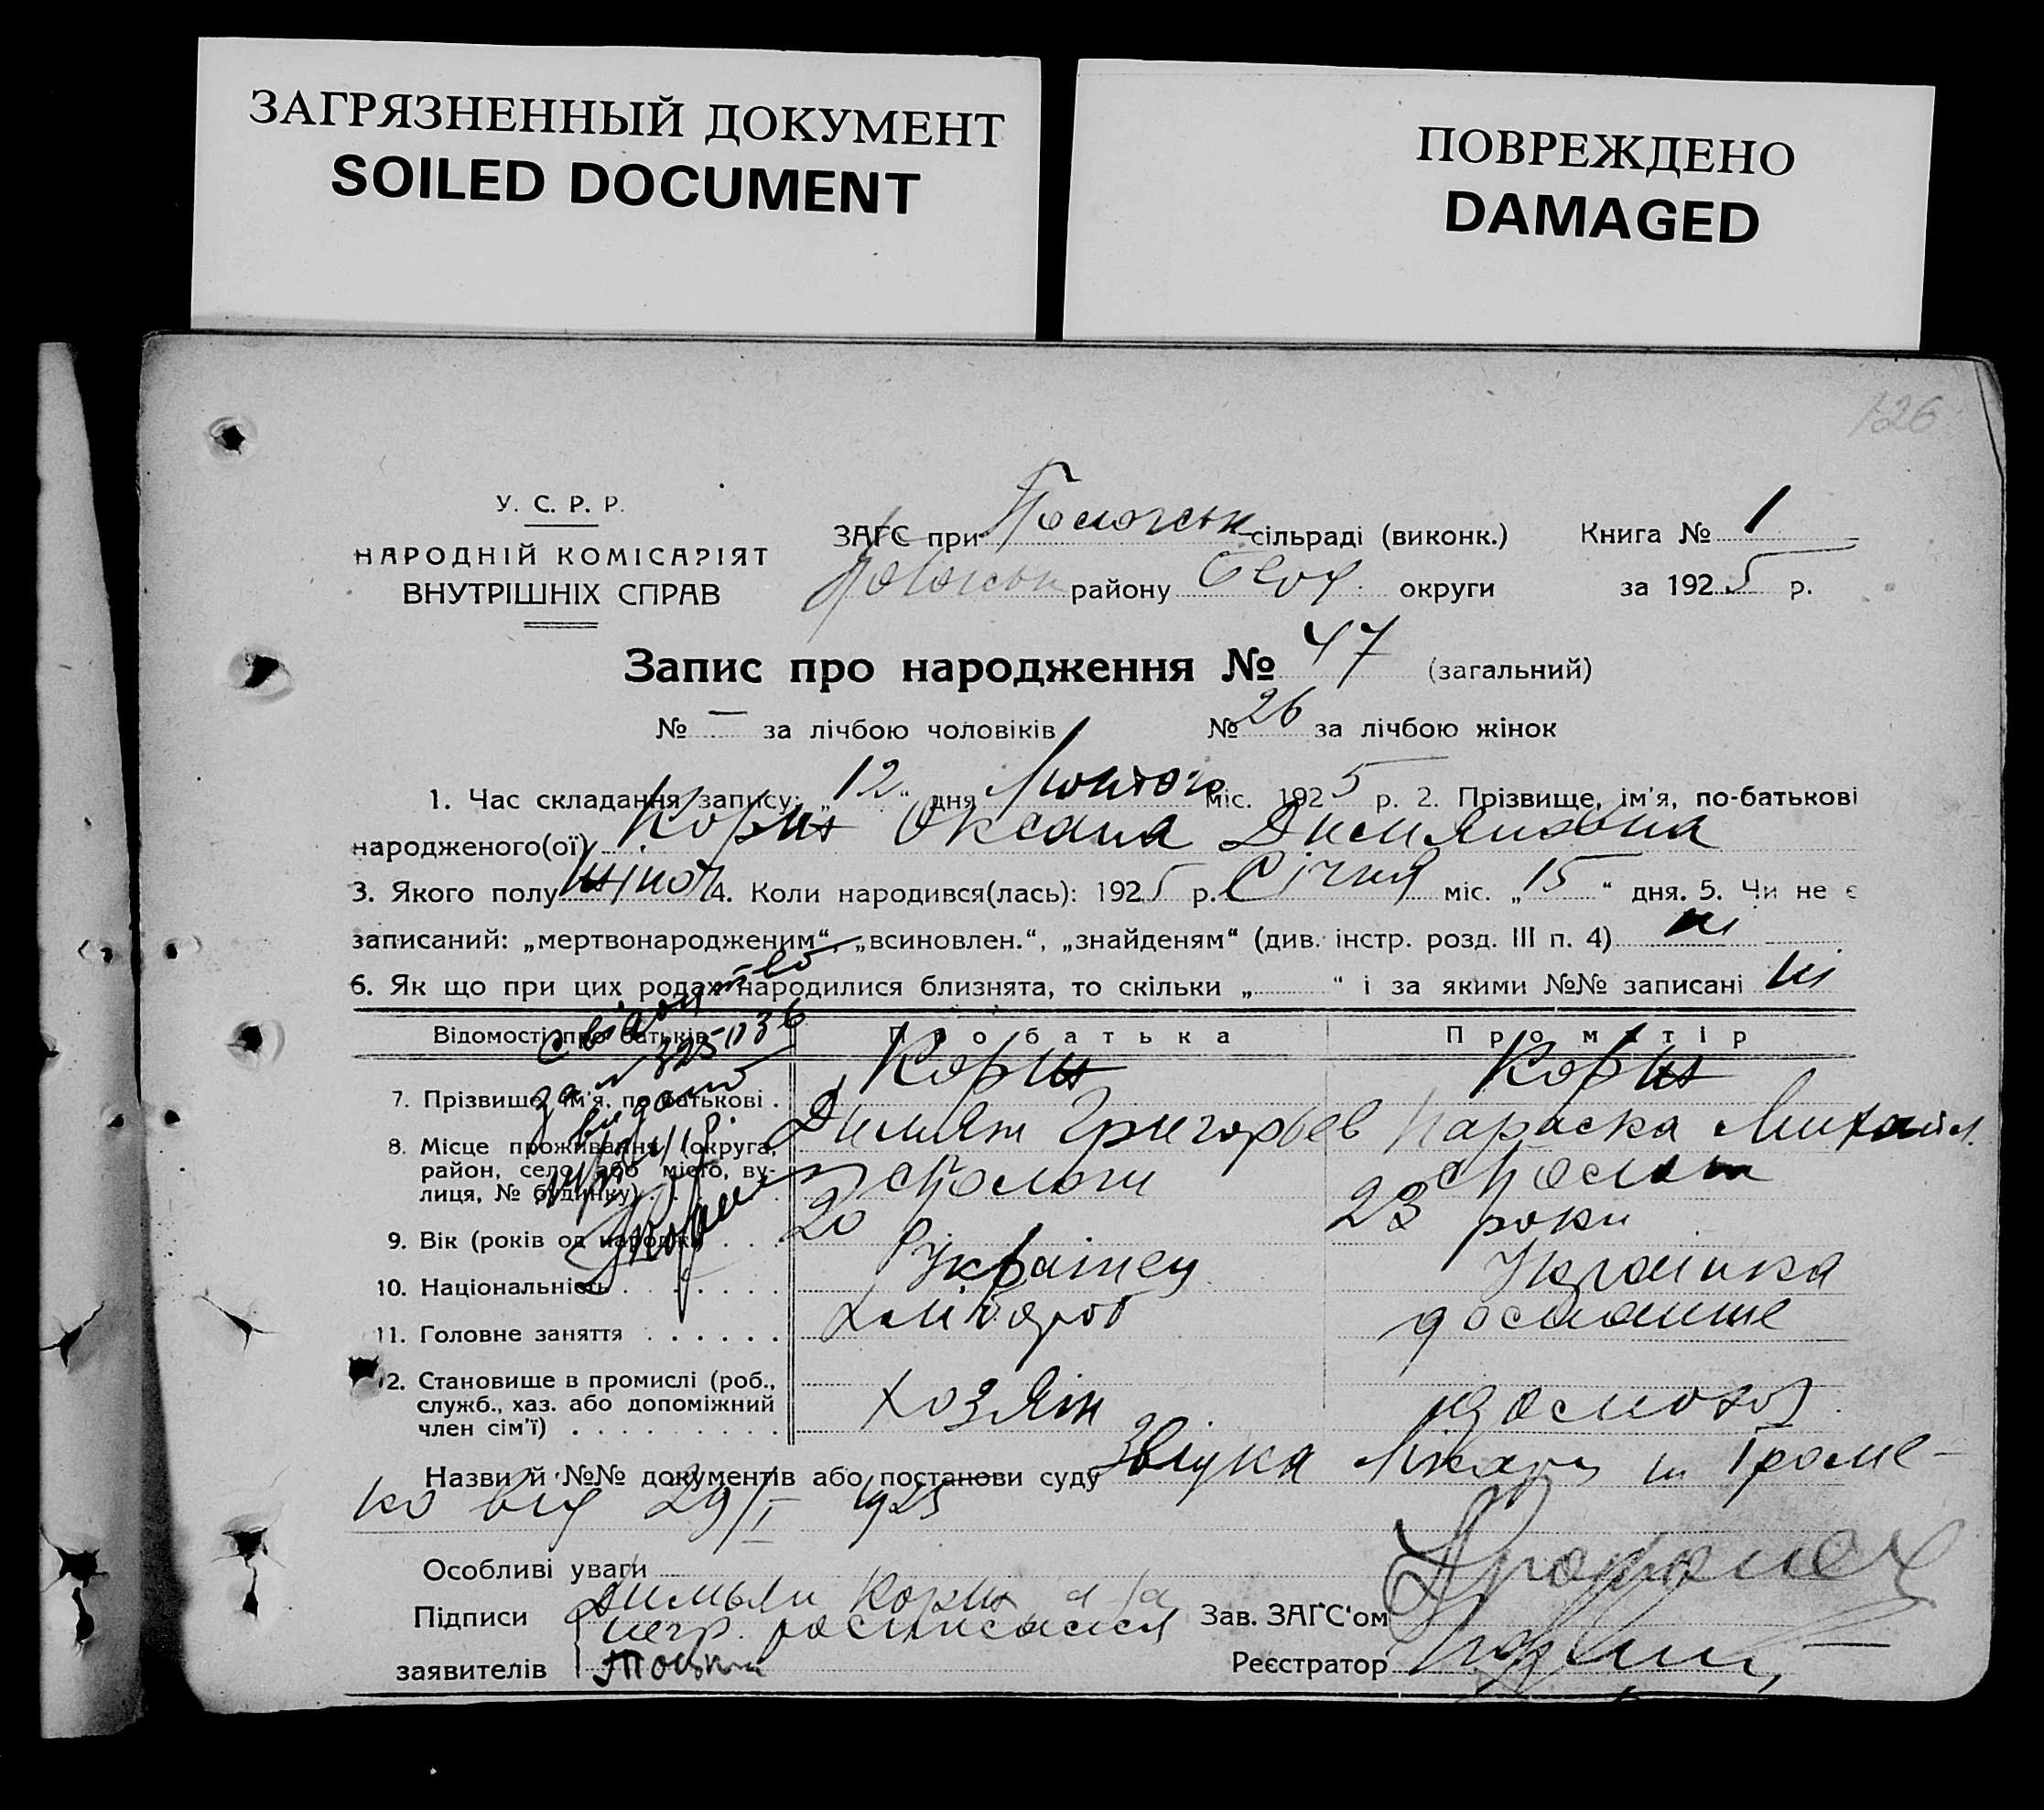 ЗАГРЯЗНЕННЫЙ ДОКУМЕНТ
SOILED DOCUMENT
ПОВРЕЖДЕНО
DAMAGED
126
У. С. Р. Р.
НАРОДНІЙ КОМІСАРІЯТ
ВНУТРІШНІХ СПРАВ
ЗАГС при сільраді (виконк.) Книга № 1
району округи за 1925 р.
Запис про народження № 47 (загальний)
№ — за лічбою чоловіків № 26 за лічбою жінок
1. Час складання запису: „12“ дня Лютого міс. 1925 р. 2. Прізвище, ім'я, по-батькові
народженого(ої) Корж Оксана Димяновна
3. Якого полу жіноч 4. Коли народився(лась): 1925 р. Січня міс. „15“ дня. 5. Чи не є
записаний: „мертвонародженим“, „всиновлен.“, „знайденям“ (див. інстр. розд. III п. 4) ні
6. Як що при цих родах народилися близнята, то скільки „ “ і за якими №№ записані ні
Відомості про батьків Про батька Про матір
Корж Корж
7. Прізвище, ім'я, по батькові . Димян Григорьев Параска Михайл.
8. Місце проживання (округа,
район, село або місто, ву-
лиця, № будинку) . . .
9. Вік (років од народж.) . . . 20 23 роки
10. Національність . . . . . . . Українец Українка
11. Головне заняття . . . . . . хлібороб
12. Становище в промислі (роб.,
служб., хаз. або допоміжний
член сім'ї) . . . . . . . . . хозяін
Свідоцтво
за № 325036
видано
Назви й №№ документів або постанови суду
ко від 29/I 1925
Особливі уваги
Підписи Димьян Корж а за
негр. росписался
заявителів
Зав. ЗАГС'ом
Реєстратор